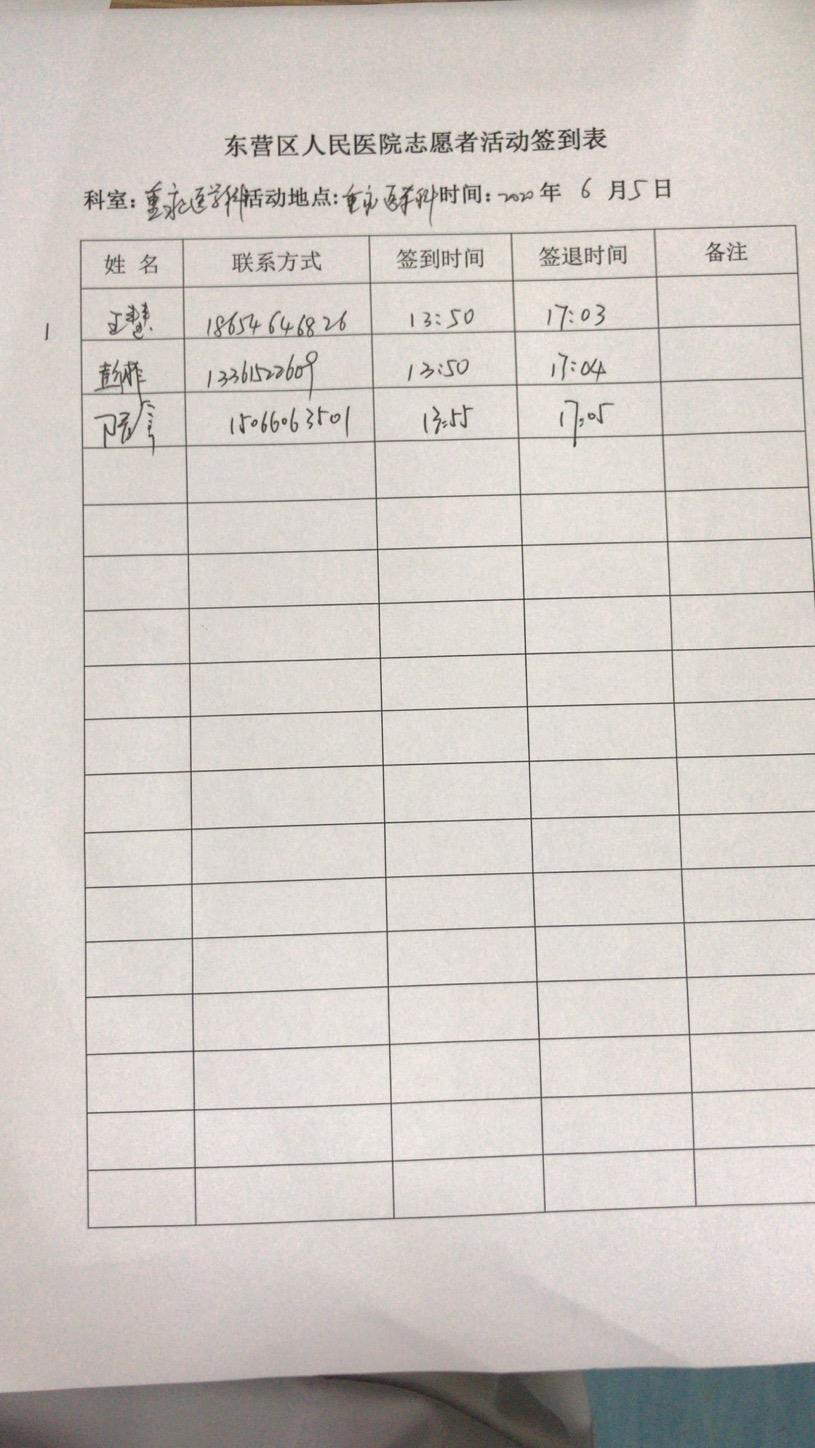 东营区人民医院志愿者活动签到表
科室:重症医学科活动地点:重症医学科时间:2020年 6 月5日
姓 名 联系方式 签到时间 签退时间 备注
1 王慧 18654646826 13:50 17:03
彭 13361522609 13:50 17:04
15066063501 13:55 17:05